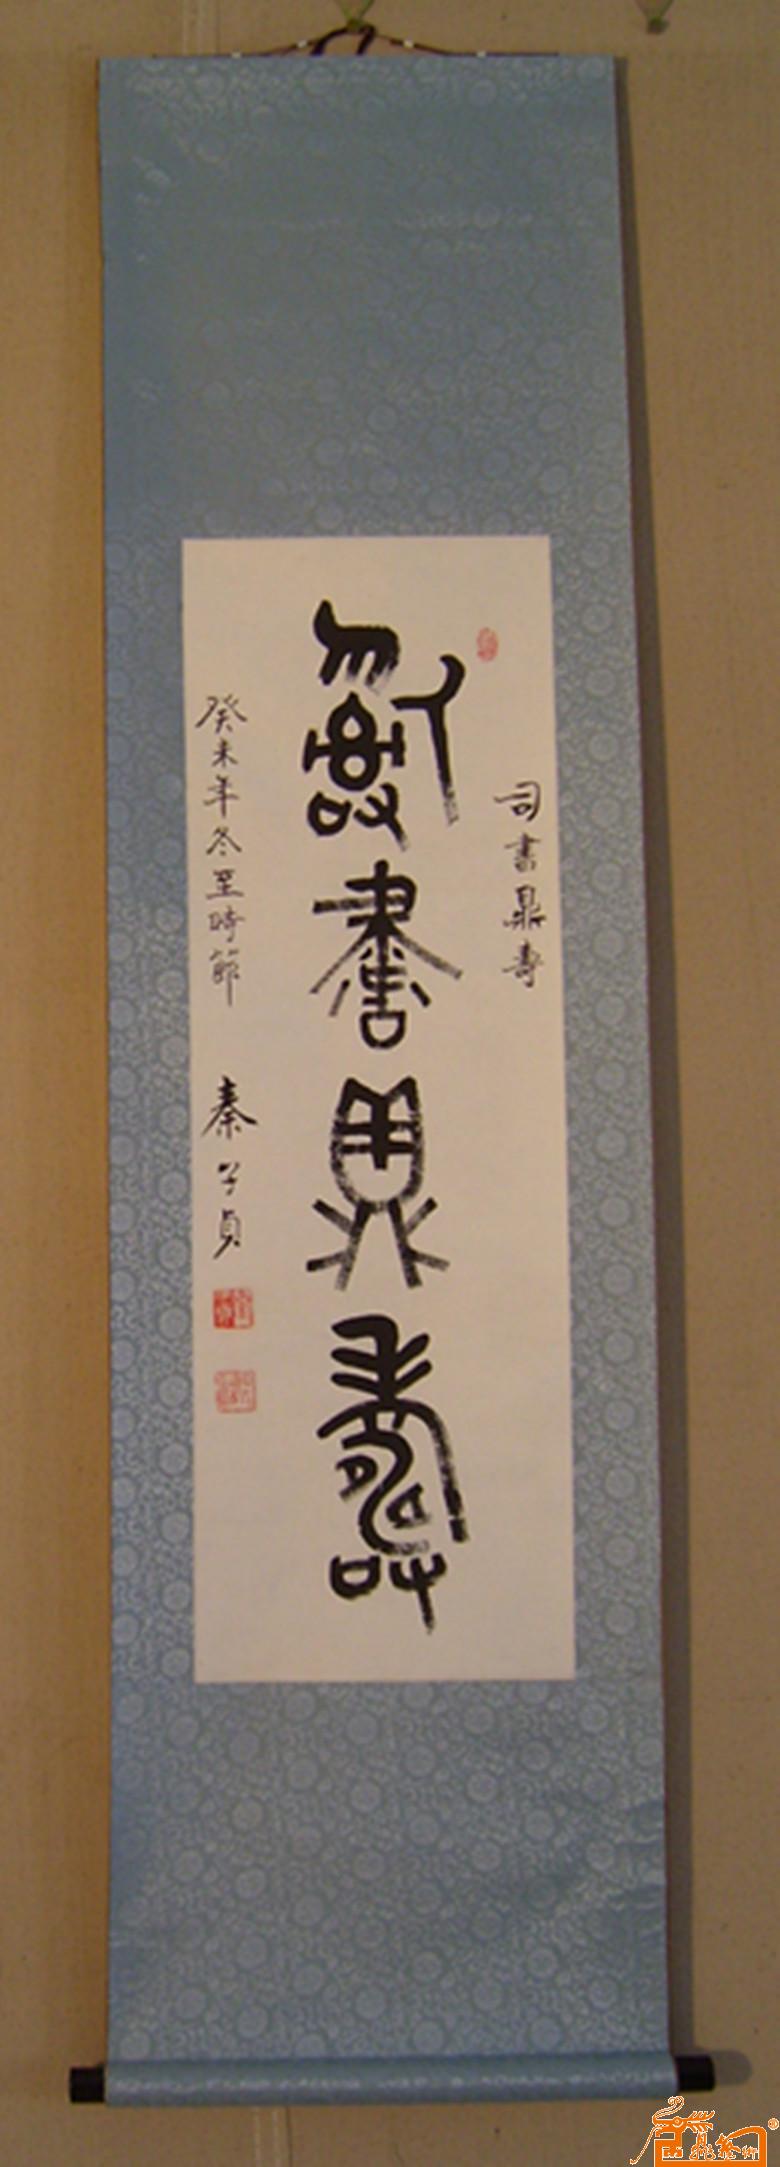 司書鼎壽
𤔲書鼎壽
癸未年冬至時節
秦子貞